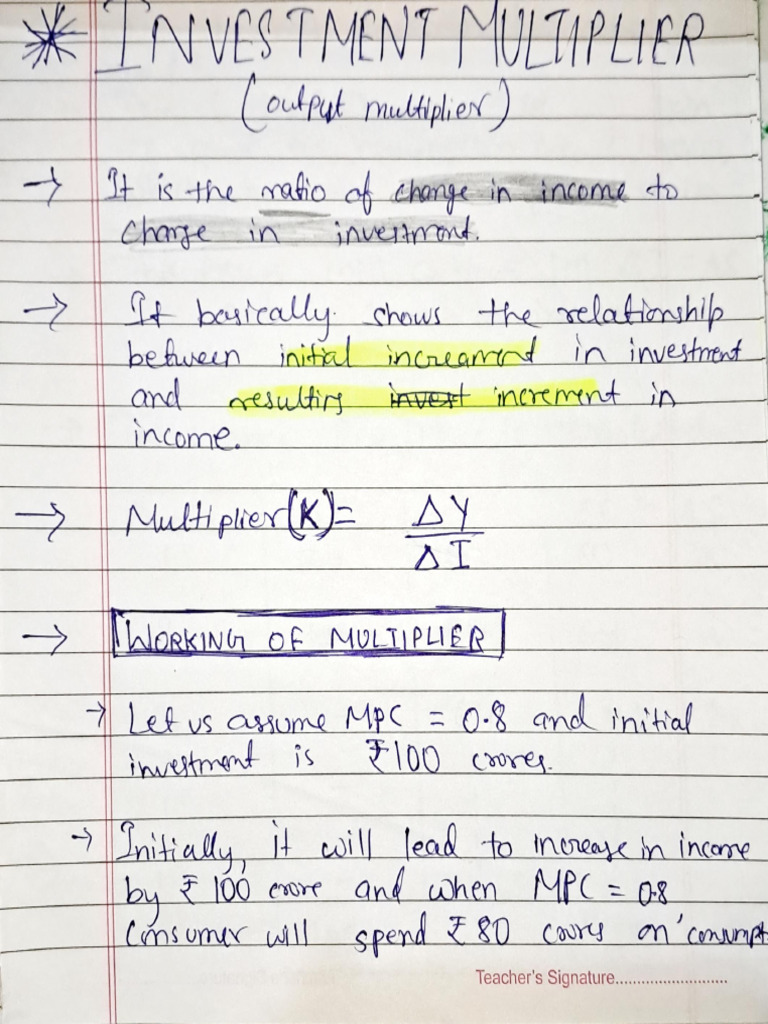 * INVESTMENT MULTIPLIER
(output multiplier)
→ It is the ratio of change in income to
change in investment.
→ It basically shows the relationship
between initial increament in investment
and resulting invest increment in
income.
→ Multiplier (K) = ΔY
ΔI
→ WORKING OF MULTIPLIER
→ Let us assume MPC = 0.8 and initial
investment is ₹100 crores.
→ Initially, it will lead to increase in income
by ₹100 crore and when MPC = 0.8
Consumer will spend ₹80 coores on 'consumpt
Teacher's Signature..........................